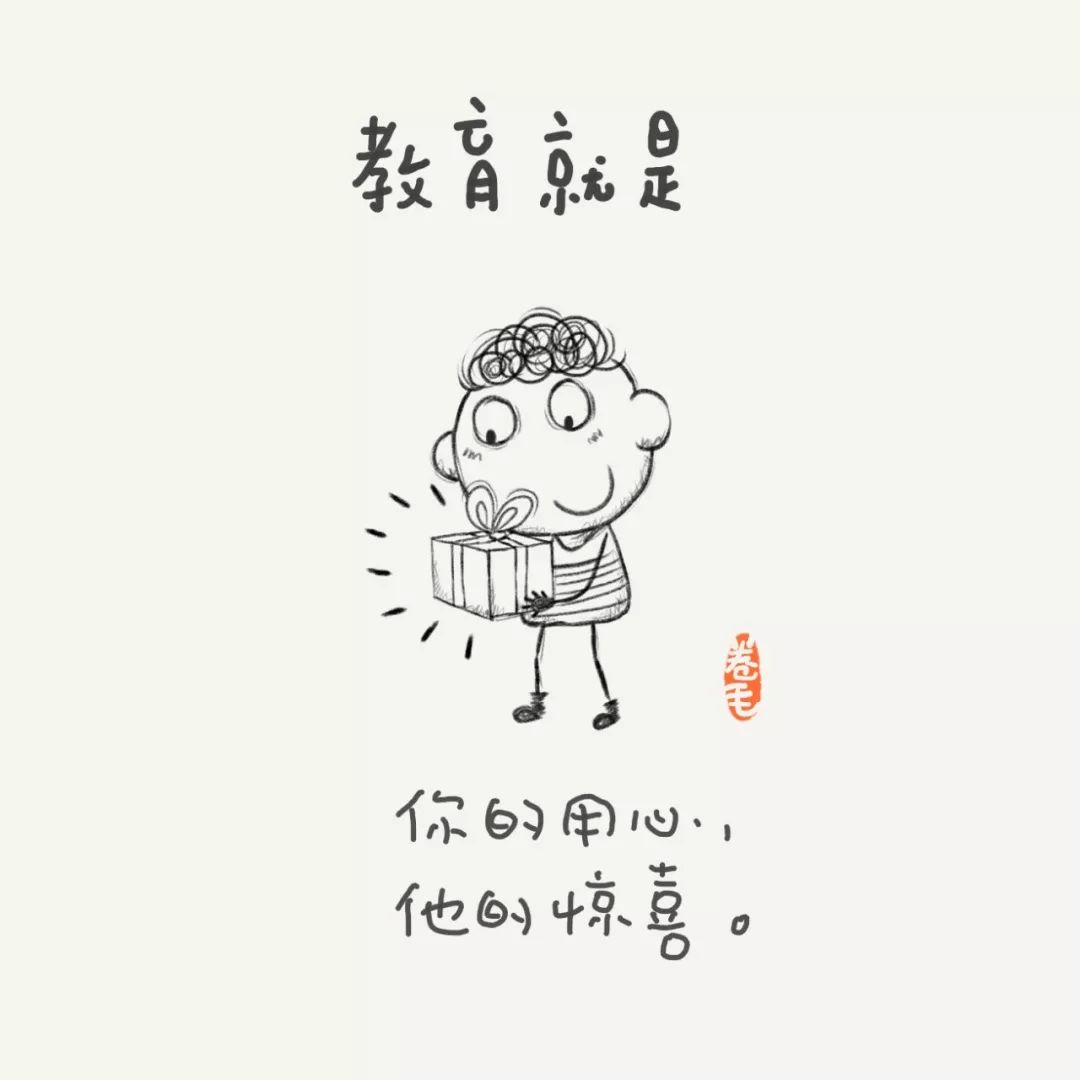 教育就是
卷毛
你的用心，
他的惊喜。